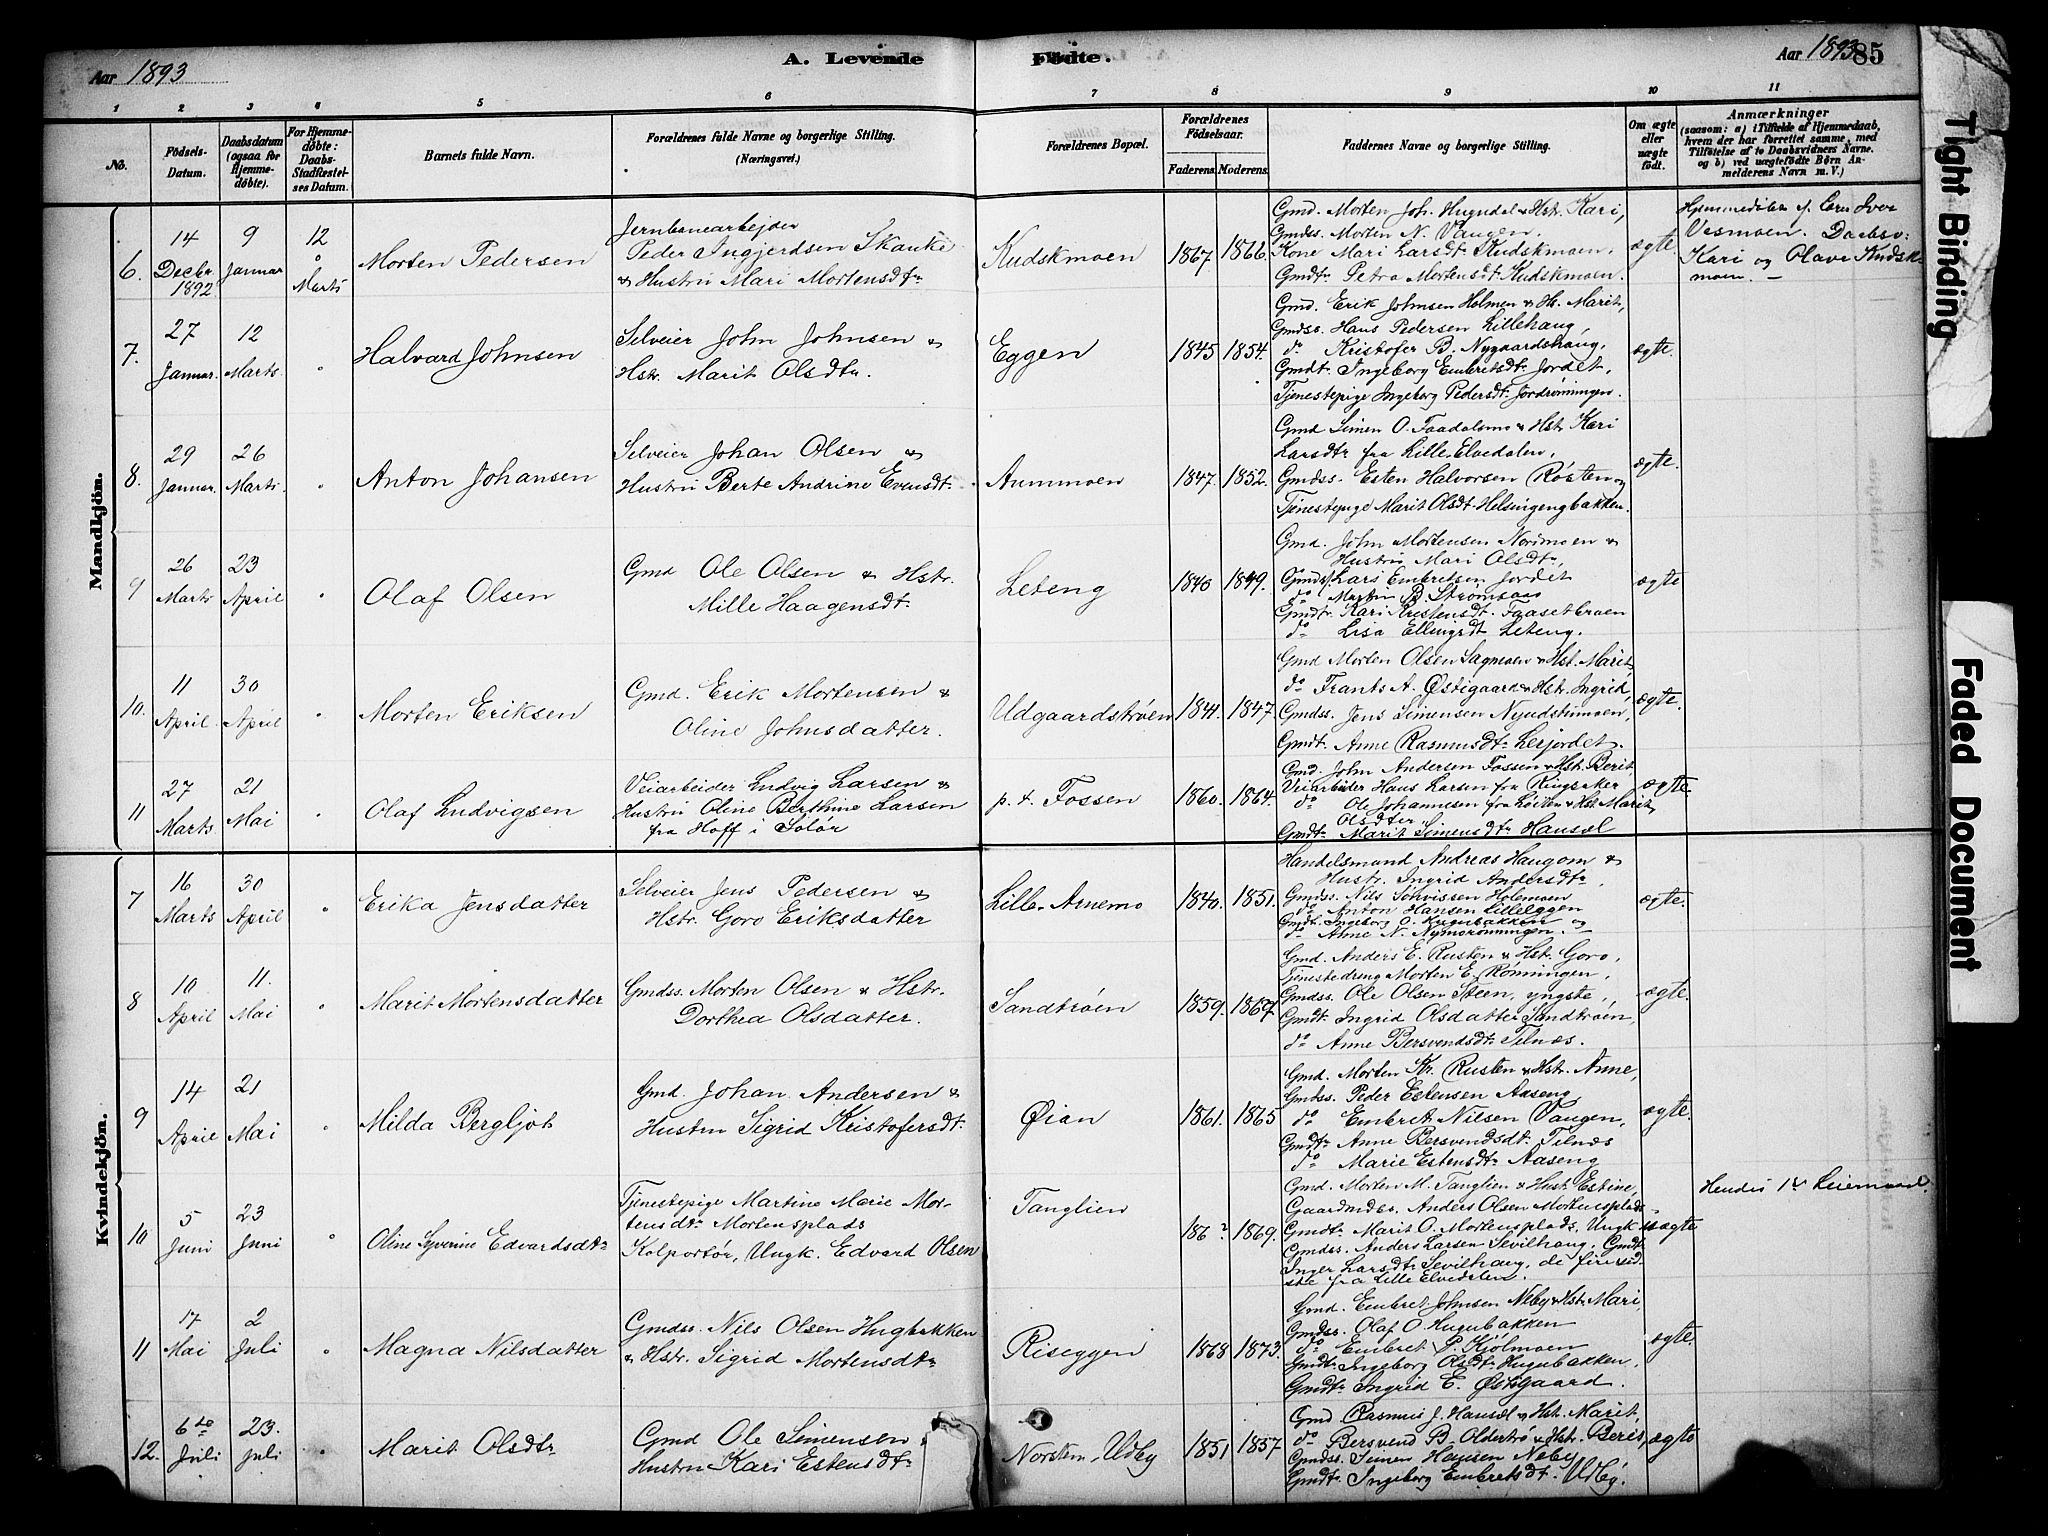 Aar 1893
A. Levende Födte.
Aar 1893 85
1 2 3 4 5 6 7 8 9 10 11
No.
Födsels-Datum.
Daabsdatum (ogsaa for Hjemmedöbte).
For Hjemmedöbte: Daabs-Stadfæstelses Datum.
Barnets fulde Navn.
Forældrenes fulde Navne og borgerlige Stilling. (Næringsvei.)
Forældrenes Bopæl.
Forældrenes Födselsaar.
Faderens. Moderens.
Faddernes Navne og borgerlige Stilling.
Om ægte eller uægte födt.
Anmærkninger
(saasom: a) i Tilfælde af Hjemmedaab, hvem der har forrettet samme, med Tilföielse af to Daabsvidners Navne. og b) ved uægtefödte Börn Anmelderens Navn m. V.)
Mandkjön.
6. 14 Decbr. 1892 9 Januar 12 Marts
Morten Pedersen
Jernbanearbejder
Peder Ingjerdsen Skauke
& Hustru Mari Mortensdtr
Kudskmoen 1867. 1866.
Gmd. Morten Joh. Hugudal & Hstr. Kari,
Gmdss. Morten N. Vangen,
Kone Mari Larsdtr Kudskmoen.
Gmdtr Petra Mortensdtr Kudskmoen.
ægte.
Hjemmedöbt af Iver
Vesmoen. Daabsv:
Kari og Olava Kudsk-
moen. —
7. 27 Januar. 12 Marts. "
Halvard Johnsen
Selveier John Johnsen &
Hstr. Marit Olsdtr.
Eggen 1845 1854.
Gmd. Erik Johnsen Holmen & Hs. Marit,
Gmdss. Hans Pedersen Lillehaug,
do Kristofer B. Nygaardshaug,
Gmdtr. Ingeborg Embretsdtr Jordet,
Tjenestepige Ingeborg Pedersdtr Jordrønningen.
ægte.
8. 29 Januar. 26 Marts. "
Anton Johansen
Selveier Johan Olsen &
Hustru Berte Andrine Evensdtr.
Aummoen 1847. 1852.
Gmd Simen O. Faadalsmo & Hstr. Kari
Larsdtr fra Lille Elvedalen,
Gmdss. Esten Halvorsen Røsten og
Tjenestepige Marit Olsdtr Helsingengbakken.
ægte.
9 26 Marts 23 April "
Olaf Olsen
Gmd Ole Olsen & Hstr.
Mille Haagensdtr.
Leteng 1840 1849.
Gmd. John Mortensen Nordmoen &
Hustru Mari Olsdtr,
Gmdss. Lars Embretsen Jordet
do Martin B. Strømsaas
Gmdtr. Kari Kristensdtr. Faasetbroen
do Lisa Ellingsdtr Leteng.
ægte
10. 11 April. 30 April. "
Morten Eriksen
Gmd. Erik Mortensen &
Oline Johnsdatter.
Udgaardstrøen 1841. 1847.
Gmd Morten Olsen Sagmoen & Hst. Marit,
do Frants A. Østigaard & Hstr. Ingrid,
Gmdss. Jens Simensen Nyudstumoen,
Gmdt. Anne Rasmusdtr Lerjordet.
ægte.
11 27 Marts 21 Mai "
Olaf Ludvigsen
Veiarbeider Ludvig Larsen &
Hustru Oline Berthine Larsen
fra Hoff i Solør
p. t. Fossen 1860. 1864.
Gmd. John Andersen Fossen & Hst. Berit,
Veiarbeider Hans Larsen fra Ringsaker
do Ole Johannesen fra Løiten & Hst. Marit
Olsdter.
Gmdtr Marit Simensdtr Hansæl
ægte.
Kvindekjön.
7 16 Marts 30 April "
Erika Jensdatter
Selveier Jens Pedersen &
Hstr. Goro Eriksdatter
Lille-Arnemo 1840. 1851.
Handelsmand Andreas Haugom &
Hustr. Ingrid Andersdtr,
Gmdss. Nils Solvissen Holemoen
do Anton Hansen Lilleeggen
Gmdt. Ingeborg O. Hugubakken og
do Anne N. Nymorønningen. —
ægte.
8 10 April 11. Mai "
Marit Mortensdatter
Gmdss. Morten Olsen & Hstr.
Dorthea Olsdatter.
Sandtrøen 1859. 1867
Gmd. Anders E. Rusten & Hst. Goro,
Tjenestedreng Morten E. Rønningen,
Gmdss. Ole Olsen Steen, yngste,
Gmdt. Ingrid Olsdatter Sandtrøen,
do Anne Bersvendsdtr Telnæs.
ægte.
9 14 April 21 Mai "
Milda Bergljot
Gmd Johan Andersen &
Hustru Sigrid Kristofersdtr.
Øian 1861. 1865
Gmd. Morten Kr. Rusten & Hstr. Anne,
Gmdss. Peder Estensen Aaseng
do Embret Nilsen Vangen,
Gmdtr Anne Bersvendsdtr Telnæs
do Marie Estensdtr Aaseng
ægte.
10 5 Juni 23 Juni "
Oline Syverine Edvardsdtr
Tjenestepige Martine Marie Mor-
tensdtr Mortensplads
Kolportør, Ungk. Edvard Olsen
Tanglien 186? 1869.
Gmd. Morten M. Tanglien & Hustr. Estine,
Gaardmdss. Anders Olsen Mortensplads,
Gmdtr Marit O. Mortensplads, Ungk.
Gmdss. Anders Larsen Sevilhaug, Gmdt.
Inger Larsdtr Sevilhaug, de fire sid-
ste fra Lille Elvedalen.
uægte
Hendes 1ste Leiermaal.
11 17 Mai 2 Juli "
Magna Nilsdatter
Gmdss. Nils Olsen Hugbakken
& Hstr. Sigrid Mortensdtr
Riseggen 1868 1873.
Gmd. Embret Johnsen Neby & Hst. Mari,
Gmdss. Olaf O. Hugubakken
do Embret P. Kjølmoen
Gmdtr Ingeborg Olsdt. Hugubakken,
Gmdtr Ingrid E. Østigaard.
ægte.
12. 6te Juli 23. Juli "
Marit Olsdtr
Gmd Ole Simensen &
Hustru Kari Estensdtr
Norsten, Udby 1851 1857
Gmd Rasmus J. Hansæl & Hst. Marit,
do Bersvend B. Oldertrø & Hstr. Berit,
Gmdss. Simen Hansen Neby
Gmdtr Ingeborg Embretsdt. Udby.
ægte
Tight Binding
Faded Document